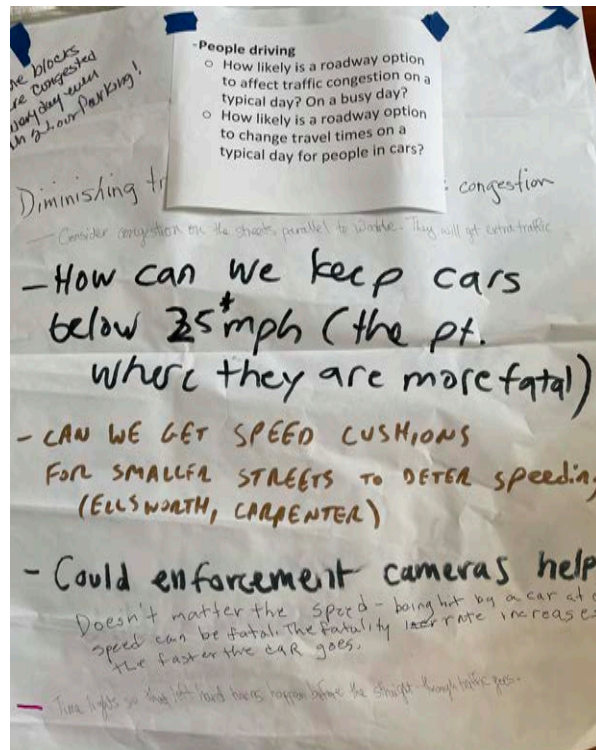 blocks
congested
every day even
2 hour Parking!
-People driving
○ How likely is a roadway option
to affect traffic congestion on a
typical day? On a busy day?
○ How likely is a roadway option
to change travel times on a
typical day for people in cars?
Diminishing tr
congestion
- Consider congestion on the streets parallel to They will get extra traffic
- How can we keep cars
below 25* mph (the pt.
where they are more fatal)
- CAN WE GET SPEED CUSHIONS
FOR SMALLER STREETS TO DETER speeding
(ELLSWORTH, CARPENTER)
- Could enforcement cameras help
Doesn't matter the speed - being hit by a car at
speed can be fatal. The fatality rate increases
the faster the car goes.
- Time lights so that left hand turns happen before the straight-through traffic goes.